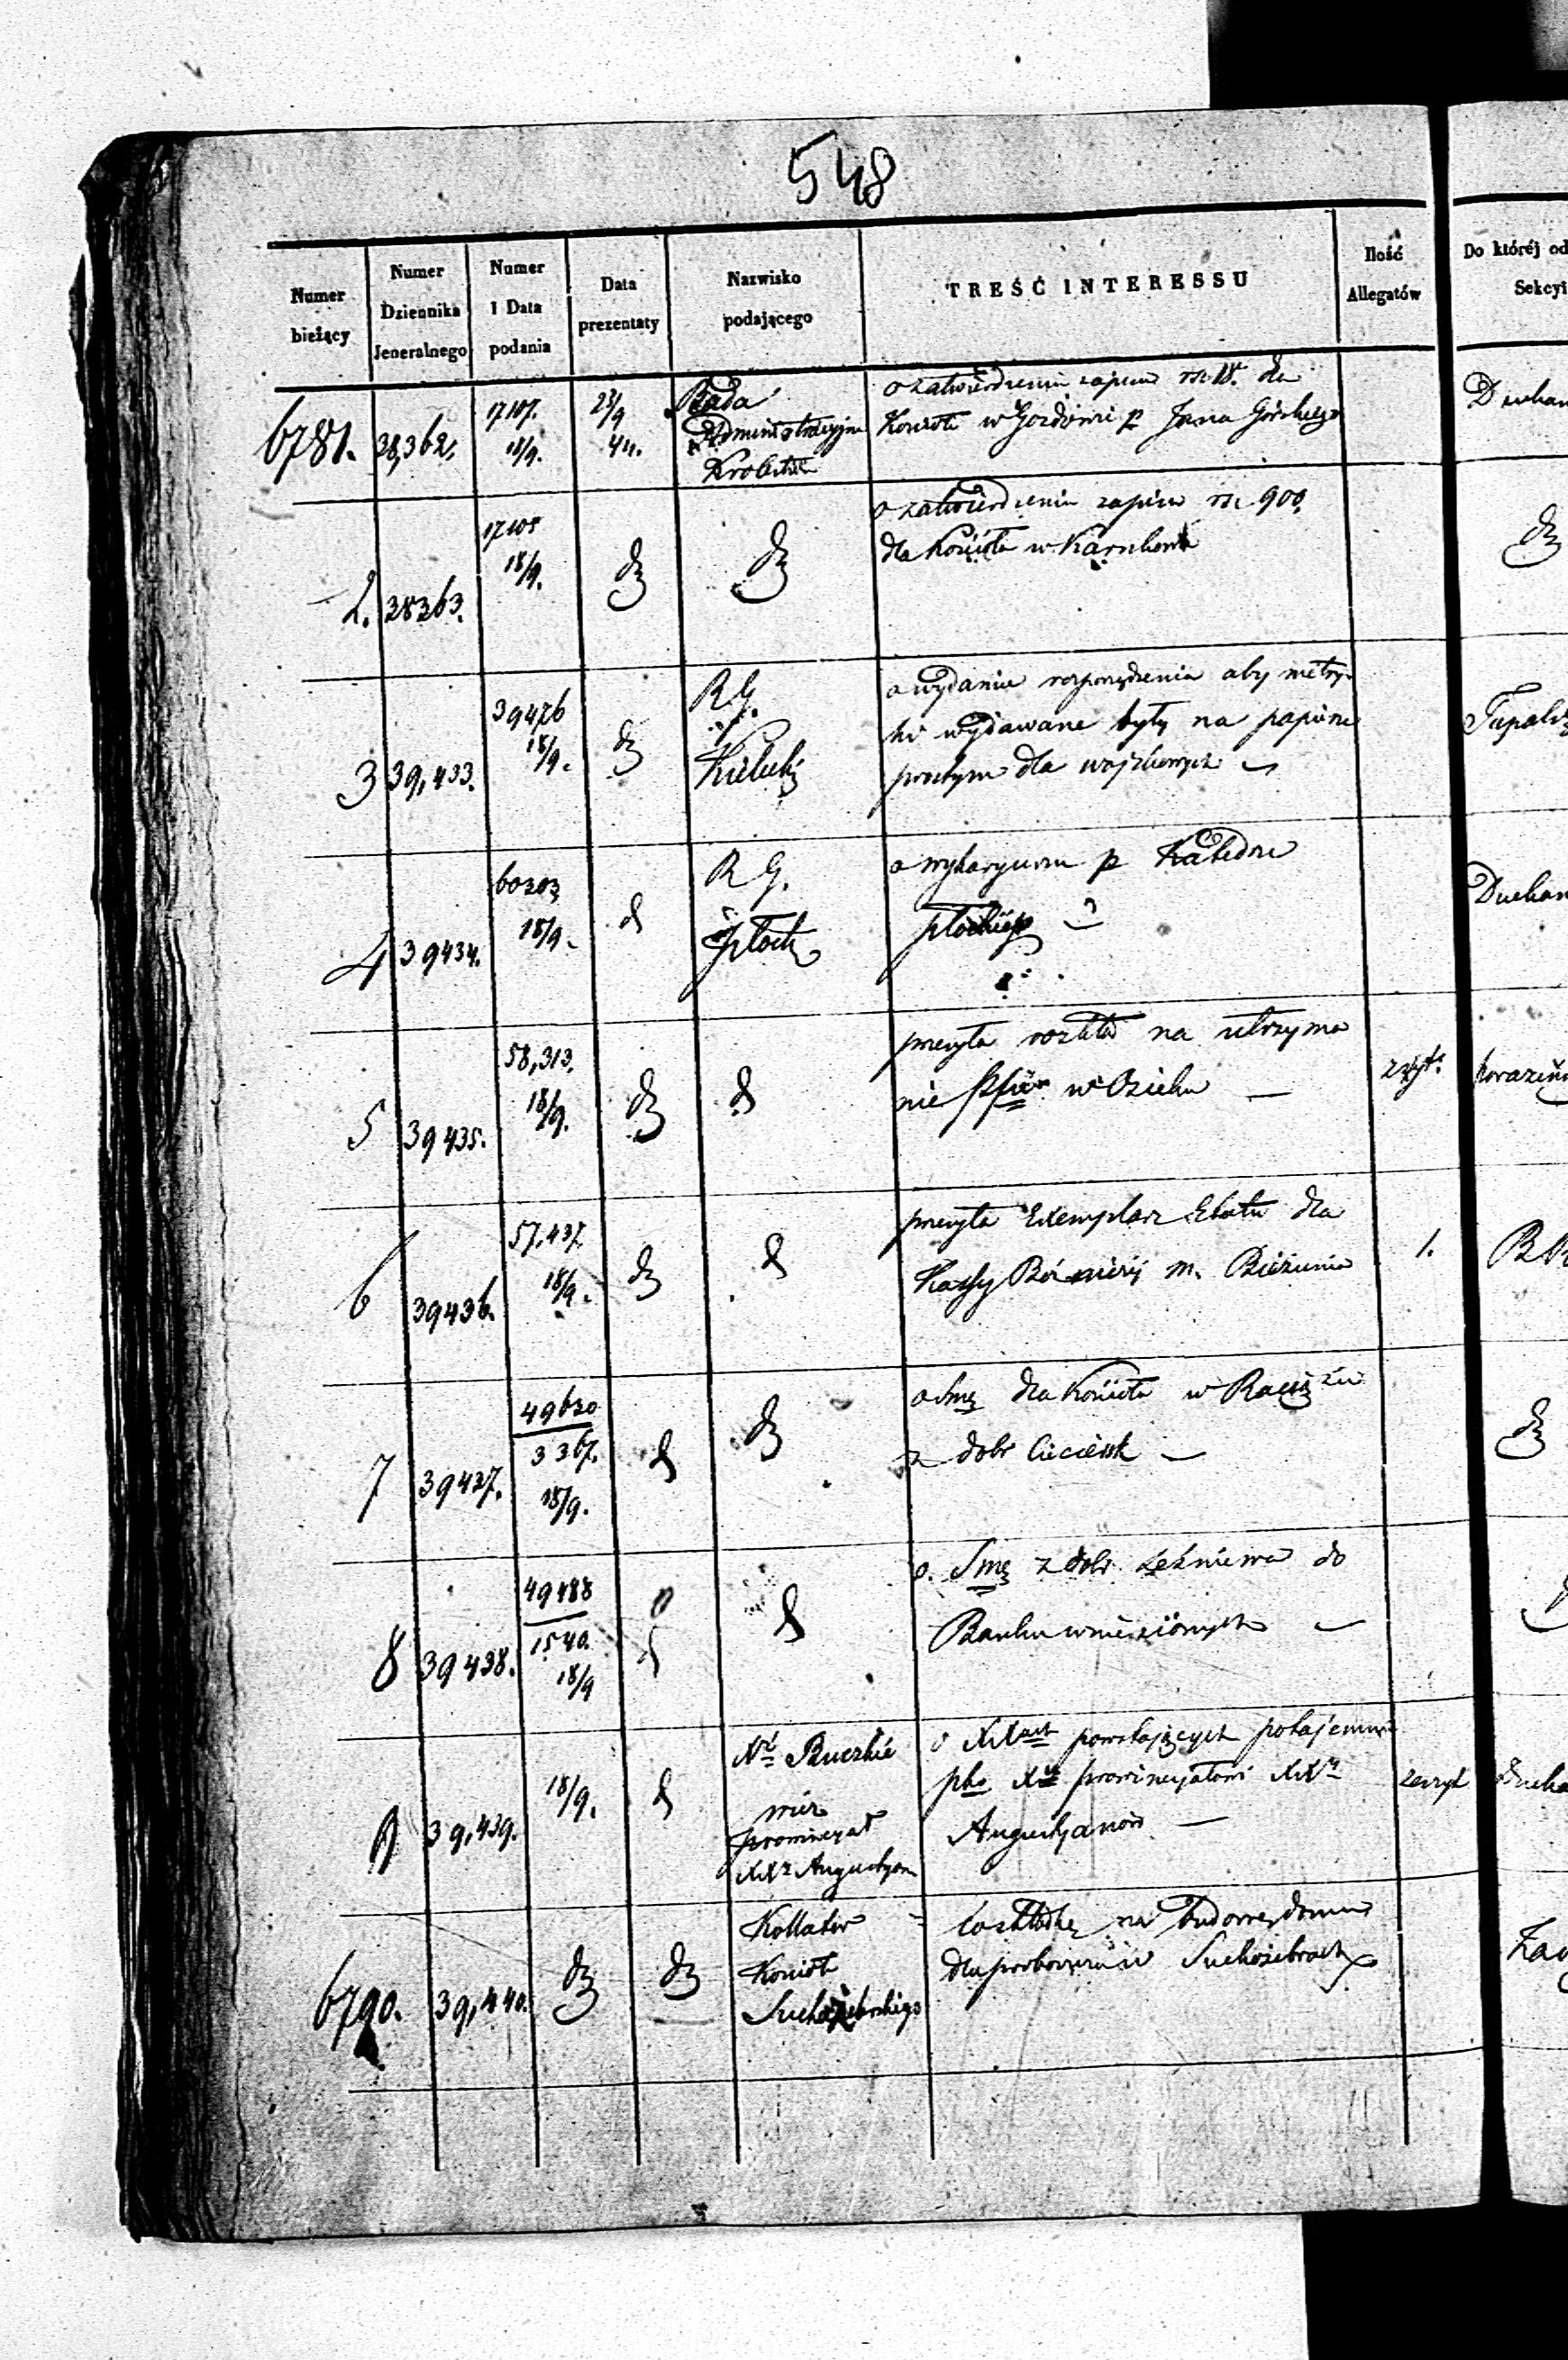 548
Numer bieżący
Numer Dziennika Jeneralnego
Numer i Data podania
Data prezentaty
Nazwisko podającego
TREŚĆ INTERESSU
Ilość Allegatów
Do której od
Sekcyi
6781. 38,362. 17107. 18/9. 23/9 44. Rada
Administracyjna
Królestwa
o zatwierdzenie zapisu rs. 15. dla
Kościoła w Gozdowie p Jana Górskiego
Duchow
2. 38363. 18/9. dº dº
o zatwierdzenie zapisu rs. 900.
dla Kościoła w
dº
3 39,433. 39476 18/9. dº
R G.
Kielecki
o wydanie rozporządzenia aby metry-
ki wydawane były na papierze
prostym dla wojskowych
4 39434. 60303 18/9. dº
R G.
Płocki
o wikaryusza p Katedrze
płockiej
Duchow
5 39435. 58,313. 18/9. dº dº
przesyła rozkład na utrzyma
nie w Osieku
6 39436. 57.437. 18/9. dº dº
przesyła Exemplarz Etatu dla
Kassy Bożniczej m. Bieżunia
1.
7 39437. 49630 3367. 18/9. dº dº
o Smę dla Kościoła w Raciążu
z dobr Cieciersk
dº
8 39438. 49488 1540. 18/9 dº dº
o Smę z dobr Leźniewa do
Banku wniesionych
9 39,439. 18/9. dº
Xdz Buczkie
wicz
prowincyał
XXº Augustyan
o XXach powstających potajemnie
pko Xu prowincyałowi XXº
Augustyanów
zeszyt
Ducho
6790. 39,440. dº dº
Kollator
Kościoła
Suchożebrskiego
o składkę na budowę domu
dla proboszcza w Suchożebrach